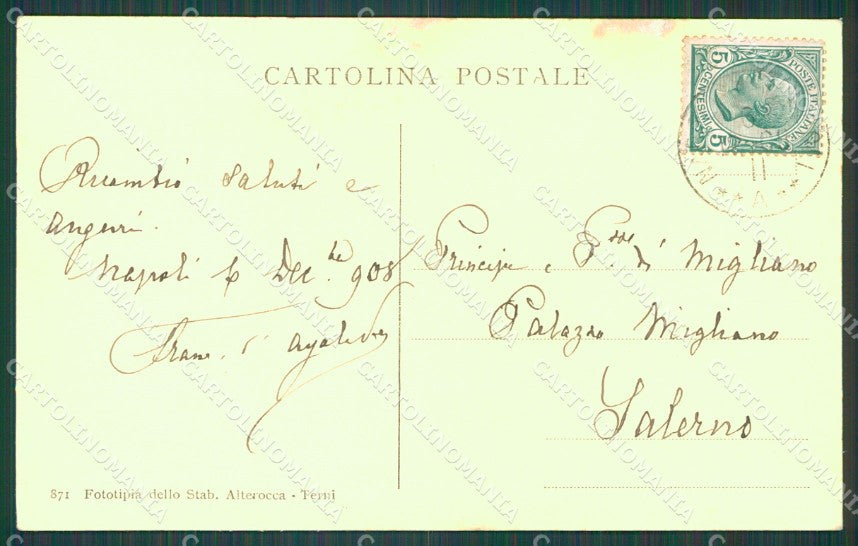 CARTOLINA POSTALE
POSTE ITALIANE
5 CENTESIMI 5
11
Ricambio saluti e
auguri.
Napoli 6 Dec.bre 908
Principe e P.ssa di Migliano
Palazzo Migliano
Salerno
871 Fototipia dello Stab. Alterocca - Terni
CARTOLINOMANIA